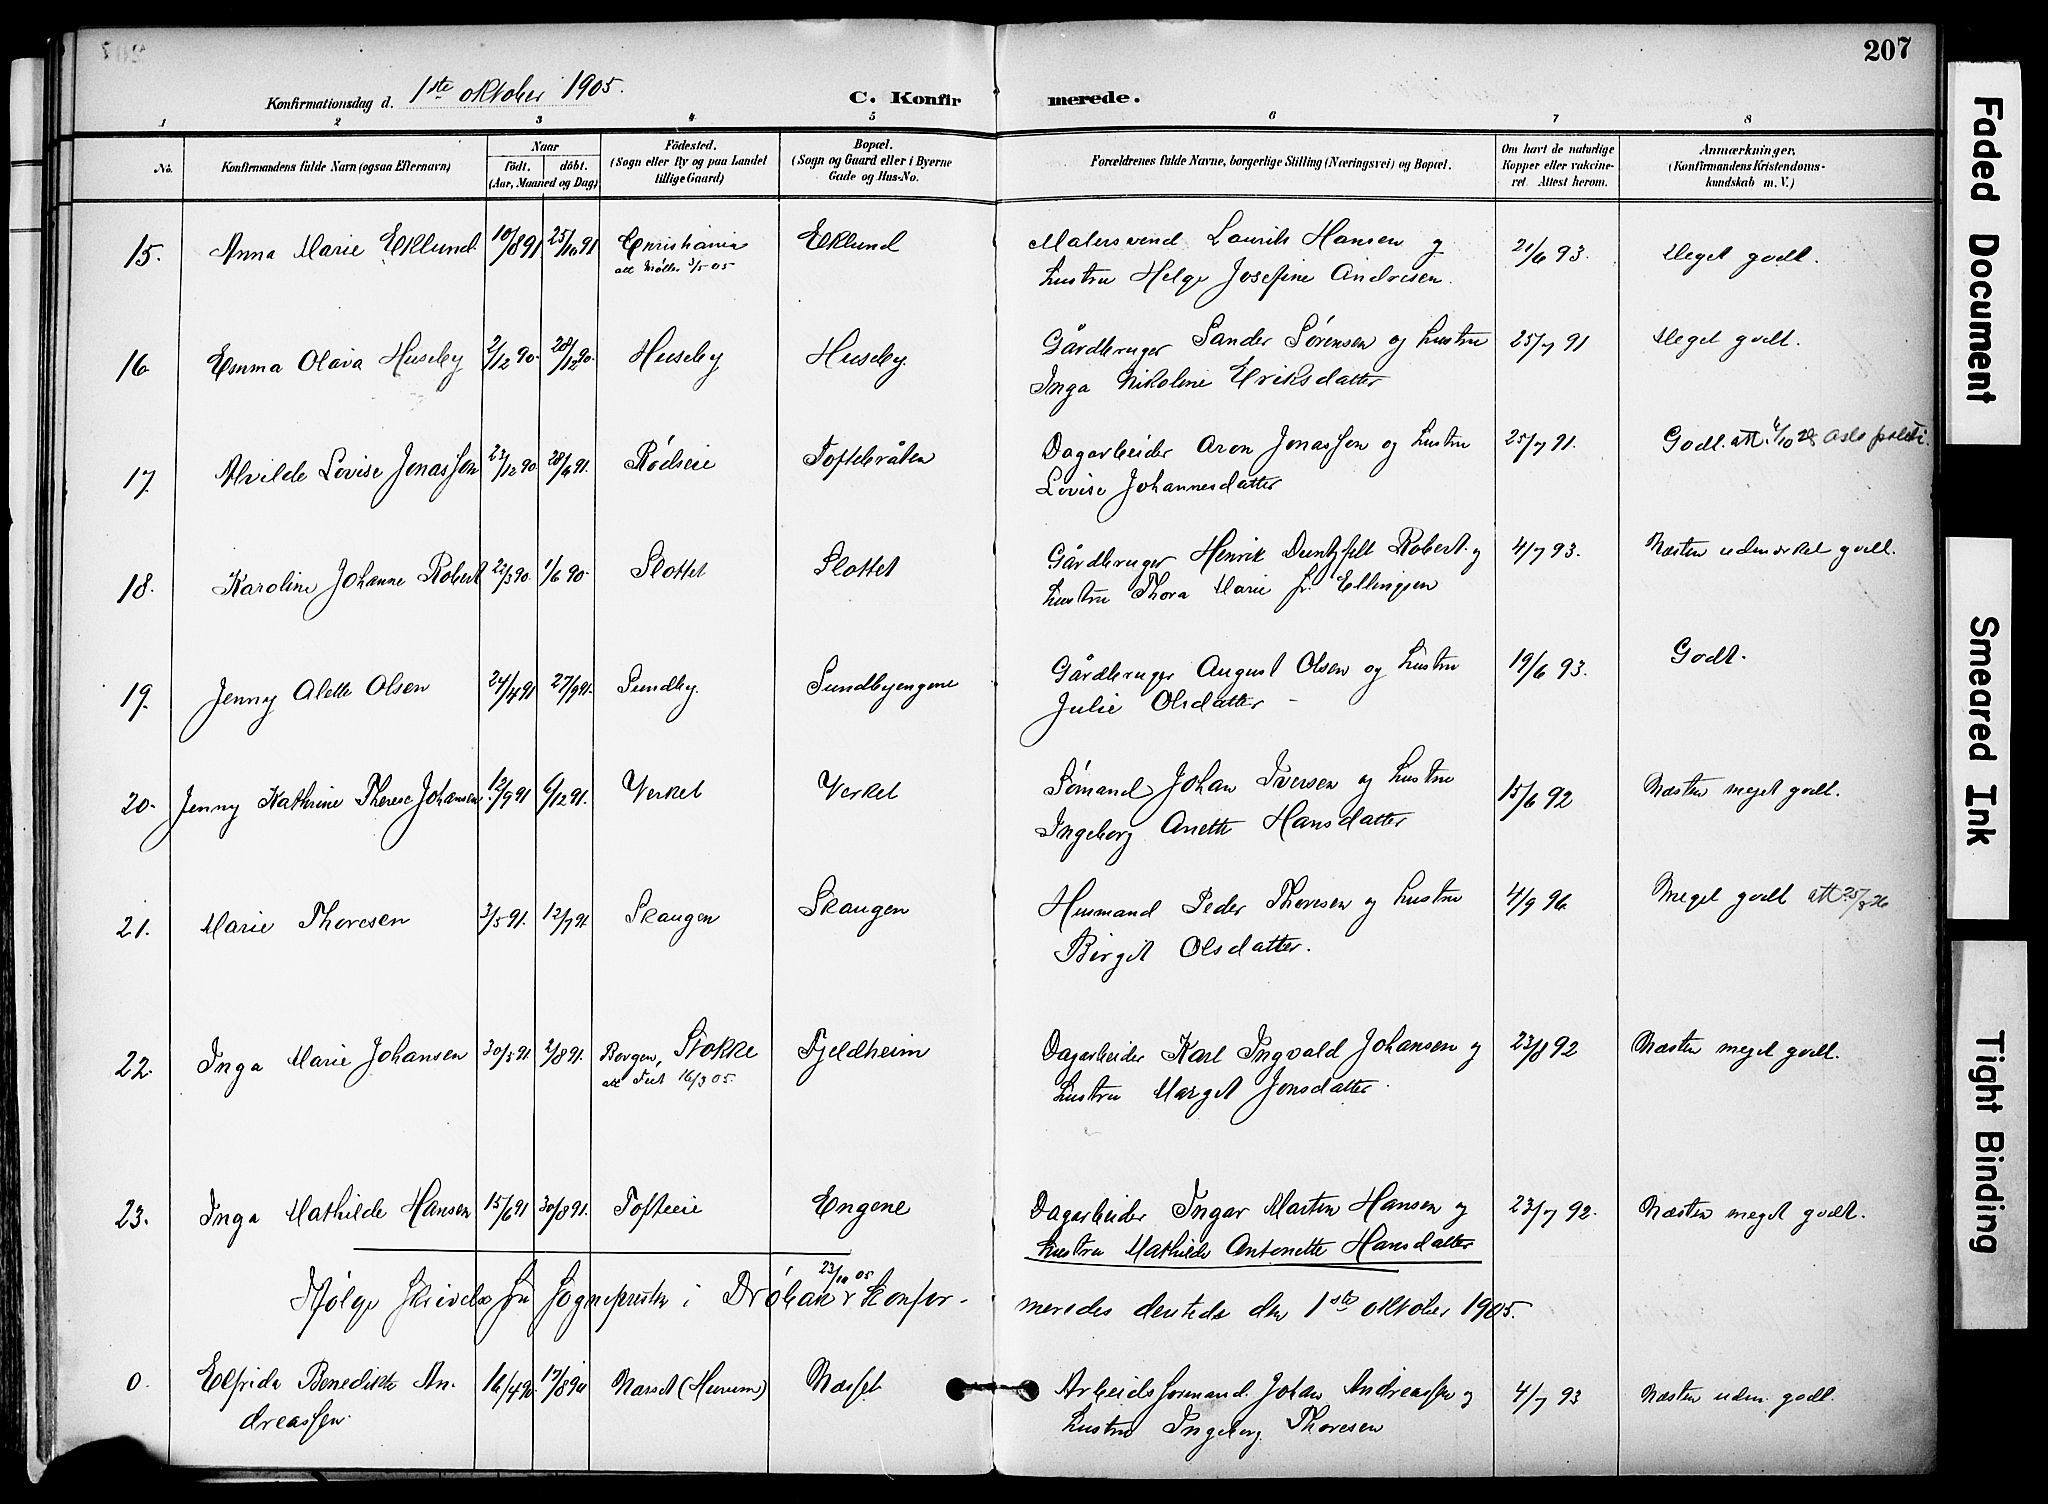 207
Konfirmationsdag d. 1ste oktober 1905.
C. Konfir merede.
1 2 3 4 5 6 7 8
No.
Konfirmandens fulde Navn (ogsaa Efternavn)
Naar
födt. döbt.
(Aar, Maaned og Dag)
Födested.
(Sogn eller By og paa Landet
tillige Gaard)
Bopæl.
(Sogn og Gaard eller i Byerne
Gade og Hus-No.
Forældrenes fulde Navne, borgerlige Stilling (Næringsvei) og Bopæl.
Om havt de naturlige
Kopper eller vakcine-
ret. Attest herom.
Anmærkninger,
(Konfirmandens Kristendoms-
kundskab m. V.)
15. Anna Marie Eklund 10/8 91 25/10 91 Christiania Eklund Malersvend Laurits Hansen og 21/6 93. Meget godt.
att Mölle 3/5 05 hustru Helga Josefine Andresen.
16. Emma Olava Huseby 2/12 90. 28/12 90. Huseby Huseby. Gårdbruger Sander Sørensen og hustru 25/7 91 Meget godt.
Inga Nikoline Eriksdatter
17. Alvilde Lovise Jonassen 23/12 90. 28/6 91. Rödseie Toftebråten Dagarbeider Aron Jonassen og hustru 25/7 91. Godt. att Oslo politi.
Lovise Johannesdatter
18. Karoline Johanne Robert 22/3 90. 1/6 90. Slottet Slottet Gårdbruger Henrik Duntzfelt Robert og 4/7 93. Næsten udmerket godt.
hustru Thora Marie f. Ellingsen
19. Jenny Alette Olsen 24/4 91 27/9 91. Sundby. Sundbyengene Gårdbruger August Olsen og hustru 19/6 93. Godt.
Julie Olsdatter
20. Jenny Kathrine Therese Johansen 12/9 91 6/12 91. Verket Verket Sømand Johan Iversen og hustru 15/6 92 Næsten meget godt.
Ingeborg Anette Hansdatter
21. Marie Thoresen 3/5 91. 12/7 91 Skaugen Skaugen Husmand Peder Thoresen og hustru 4/9 96 Meget godt att 25/8 26
Birgit Olsdatter.
22. Inga Marie Johansen 30/5 91. 2/8 91. Borgen, Stokke Fjeldheim Dagarbeider Karl Ingvald Johansen og 23/8 92 Næsten meget godt.
att 16/3 05. hustru Marget Jonsdatter.
23. Inga Mathilde Hansen 15/6 91 30/8 91. Tofteeie Engene Dagarbeider Ingar Martin Hansen og 23/7 92. Næsten meget godt.
hustru Mathilde Antonette Hansdatter
Ifølge skrivelse fra sognepresten i Drøbak 23/10 05 konfir- meredes dersteds den 1ste oktober 1905.
0. Elfrida Benedikte An- 16/4 90. 17/8 90 Nærset (Hurum) Næsset Arbeidsformand Johan Andreassen og 4/7 93 Næsten udm. godt.
dreassen. hustru Ingeborg Thoresen
Faded Document
Smeared Ink
Tight Binding